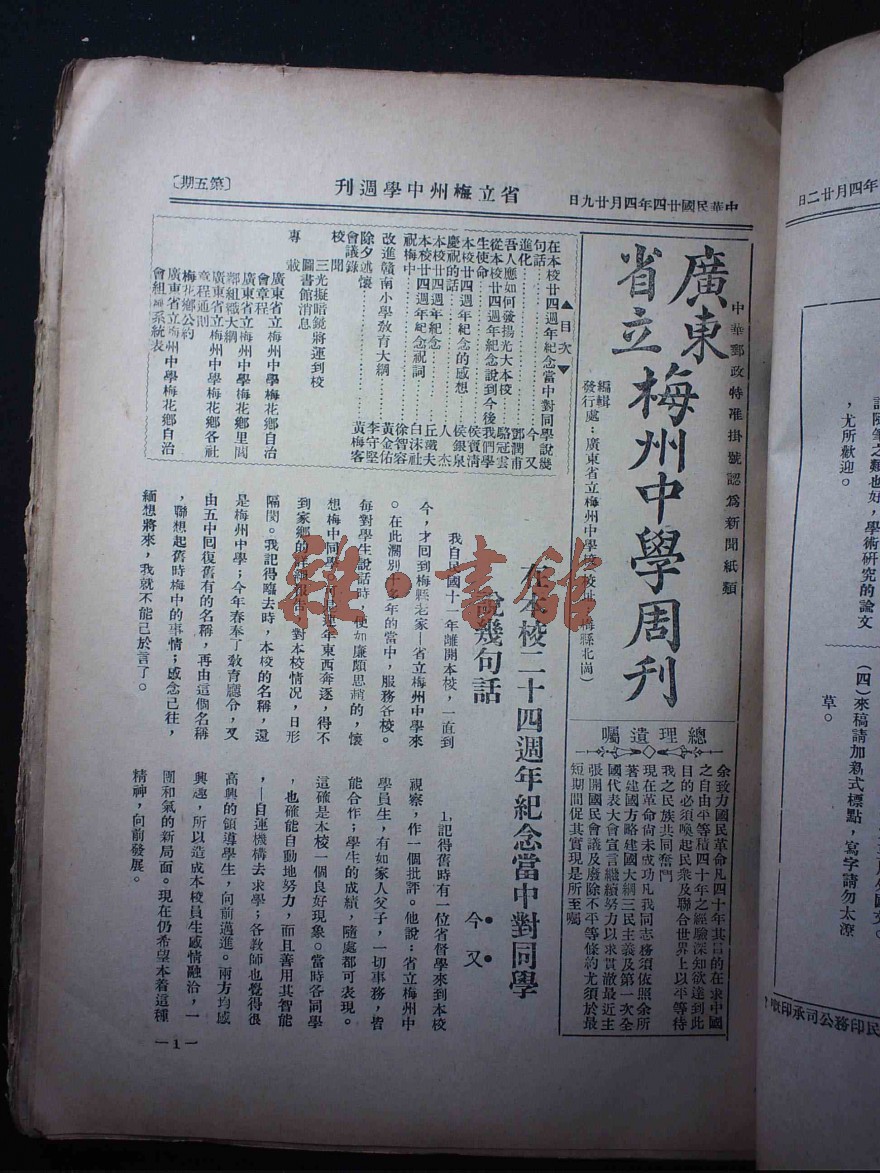 中華民國廿四年四月廿九日
省立梅州中學週刊
〔第五期〕
中華郵政特准掛號認為新聞紙類
廣東
省立
梅州中學周刊
編輯
發行處:廣東省立梅州中學
總理遺囑
余致力國民革命凡四十年其目的在求中國
之自由平等積四十年之經驗深知欲達到此
目的必須喚起民衆及聯合世界上以平等待
我之民族共同奮鬥
現在革命尚未成功凡我同志務須依照余所
著建國方略建國大綱三民主義及第一次全
國代表大會宣言繼續努力以求貫澈最近主
張開國民會議及廢除不平等條約尤須於最
短期間促其實現是所至囑
▲目次▼
在本校廿四週年紀念當中對同學說幾
句話………今又
進化………鄧潤甫
吾人應如何發揚光大本校………駱冠雲
從本校廿四週年紀念說到今後我們學
生使命………侯質清
本校廿四週年紀念的感想………侯銀泉
慶祝的話………人杰
本校廿四週年紀念………丘瓛夫
本校廿四週年紀念祝詞………白沫社
祝梅中………徐智容
改進贛南小學敎育大綱………黃金佑
除夕述懷………李守堅
會議錄………黃梅客
校聞
三光擬暗鏡將運到校
圖書館消息
專載
廣東省立梅州中學梅花鄉自治
會章程
廣東省立梅州中學梅花鄉里閭
鄰組織大綱
廣東省立梅州中學梅花鄉各社
章程通則
梅花鄉公約
廣東省立梅州中學梅花鄉自治
會組織系統表
在本校二十四週年紀念當中對同學
說幾句話
今又
我自民國十一年離開本校,一直到
今,才回到梅縣老家—省立梅州中學來
。在此濶別十多年的當中,服務各校。
每對學生說話時,便如廉頗思趙的,懷
想梅中同學。年東西奔逐,得不
到家鄉的詳細報告,對本校情况,日形
隔閡。我記得臨去時,本校的名稱,還
是梅州中學;今年春奉了敎育廳令,又
由五中回復舊有的名稱,再由這個名稱
,聯想起舊時梅中的事情;感念已往,
緬想將來,我就不能已於言了。
1.記得舊時有一位省督學來到本校
視察,作一個批評。他說:省立梅州中
學員生,有如家人父子,一切事務,皆
能合作;學生的成績,隨處都可表現。
這確是本校一個良好現象。當時各同學
,也確能自動地努力,而且善用其智能
,—自運機構去求學;各敎師也覺得很
高興的領導學生,向前邁進。兩方均感
興趣,所以造成本校員生感情融洽,一
團和氣的新局面。現在仍希望本着這種
精神,向前發展。
—1—
雜·書館
年四月廿二日
,尤所歡迎。
(四)來稿請加新式標點,寫字請勿太潦
草。